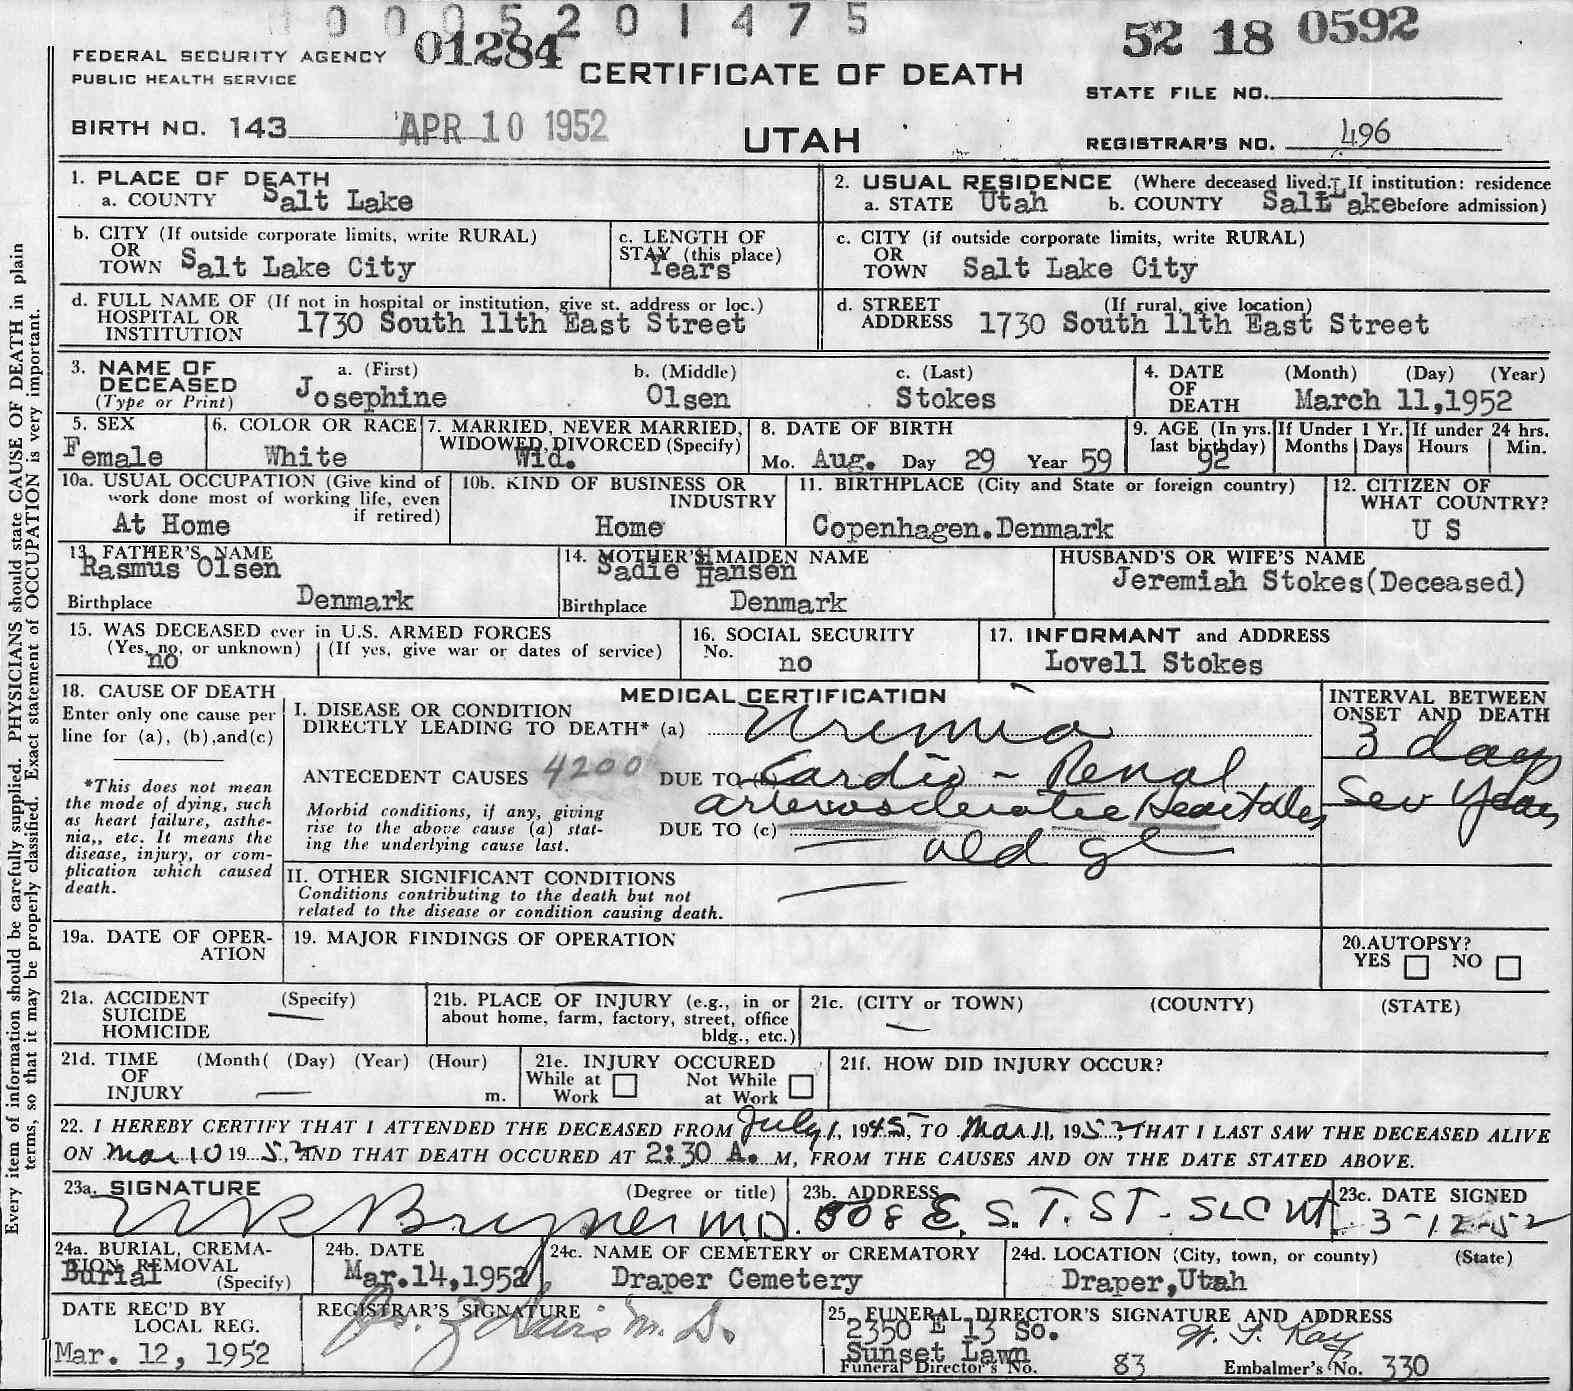 0005201475
01284
52 18 0592
FEDERAL SECURITY AGENCY
PUBLIC HEALTH SERVICE
CERTIFICATE OF DEATH
STATE FILE NO.
BIRTH NO. 143 APR 10 1952
UTAH
REGISTRAR'S NO. 496
1. PLACE OF DEATH
a. COUNTY Salt Lake
2. USUAL RESIDENCE (Where deceased lived. If institution: residence
a. STATE Utah b. COUNTY Salt Lake before admission)
b. CITY (If outside corporate limits, write RURAL)
OR
TOWN Salt Lake City
c. LENGTH OF
STAY (this place)
Years
c. CITY (if outside corporate limits, write RURAL)
OR
TOWN Salt Lake City
d. FULL NAME OF (If not in hospital or institution, give st. address or loc.)
HOSPITAL OR
INSTITUTION 1730 South 11th East Street
d. STREET (If rural, give location)
ADDRESS 1730 South 11th East Street
3. NAME OF
DECEASED
(Type or Print)
a. (First) b. (Middle) c. (Last)
Josephine Olsen Stokes
4. DATE (Month) (Day) (Year)
OF
DEATH March 11,1952
5. SEX
Female
6. COLOR OR RACE
White
7. MARRIED, NEVER MARRIED,
WIDOWED, DIVORCED (Specify)
Wid.
8. DATE OF BIRTH
Mo. Aug. Day 29 Year 59
9. AGE (In yrs.
last birthday)
92
If Under 1 Yr.
Months Days
If under 24 hrs.
Hours Min.
10a. USUAL OCCUPATION (Give kind of
work done most of working life, even
if retired)
At Home
10b. KIND OF BUSINESS OR
INDUSTRY
Home
11. BIRTHPLACE (City and State or foreign country)
Copenhagen.Denmark
12. CITIZEN OF
WHAT COUNTRY?
U S
13. FATHER'S NAME
Rasmus Olsen
Birthplace Denmark
14. MOTHER'S MAIDEN NAME
Sadie Hansen
Birthplace Denmark
HUSBAND'S OR WIFE'S NAME
Jeremiah Stokes(Deceased)
15. WAS DECEASED ever in U.S. ARMED FORCES
(Yes, no, or unknown) (If yes, give war or dates of service)
no
16. SOCIAL SECURITY
No.
no
17. INFORMANT and ADDRESS
Lovell Stokes
18. CAUSE OF DEATH
Enter only one cause per
line for (a), (b),and(c)
*This does not mean
the mode of dying, such
as heart failure, asthe-
nia,, etc. It means the
disease, injury, or com-
plication which caused
death.
MEDICAL CERTIFICATION
I. DISEASE OR CONDITION
DIRECTLY LEADING TO DEATH* (a) Uremia
ANTECEDENT CAUSES 4200 DUE TO (b) Cardio - Renal
Morbid conditions, if any, giving
rise to the above cause (a) stat-
ing the underlying cause last.
arteriosclerotic Heart dis
DUE TO (c)
old age
INTERVAL BETWEEN
ONSET AND DEATH
3 days
Sev Years
II. OTHER SIGNIFICANT CONDITIONS
Conditions contributing to the death but not
related to the disease or condition causing death.
19a. DATE OF OPER-
ATION
19. MAJOR FINDINGS OF OPERATION
20.AUTOPSY?
YES NO
21a. ACCIDENT (Specify)
SUICIDE
HOMICIDE
21b. PLACE OF INJURY (e.g., in or
about home, farm, factory, street, office
bldg., etc.)
21c. (CITY or TOWN) (COUNTY) (STATE)
21d. TIME (Month( (Day) (Year) (Hour)
OF
INJURY m.
21e. INJURY OCCURED
While at Not While
Work at Work
21f. HOW DID INJURY OCCUR?
22. I HEREBY CERTIFY THAT I ATTENDED THE DECEASED FROM July 1, 1945, TO Mar 11, 1952, THAT I LAST SAW THE DECEASED ALIVE
ON Mar 10 1952, AND THAT DEATH OCCURED AT 2:30 A. M, FROM THE CAUSES AND ON THE DATE STATED ABOVE.
23a. SIGNATURE (Degree or title)
M.D.
23b. ADDRESS
508 E. S. T. ST - SLC Ut
23c. DATE SIGNED
3-12-52
24a. BURIAL, CREMA-
TION REMOVAL
Burial (Specify)
24b. DATE
Mar.14,1952
24c. NAME OF CEMETERY or CREMATORY
Draper Cemetery
24d. LOCATION (City, town, or county) (State)
Draper,Utah
DATE REC'D BY
LOCAL REG.
Mar. 12, 1952
REGISTRAR'S SIGNATURE
M. D.
25. FUNERAL DIRECTOR'S SIGNATURE AND ADDRESS
2350 E 13 So.
Sunset Lawn
Funeral Director's No. 83 Embalmer's No. 330
Every item of information should be carefully supplied. PHYSICIANS should state CAUSE OF DEATH in plain
terms, so that it may be properly classified. Exact statement of OCCUPATION is very important.